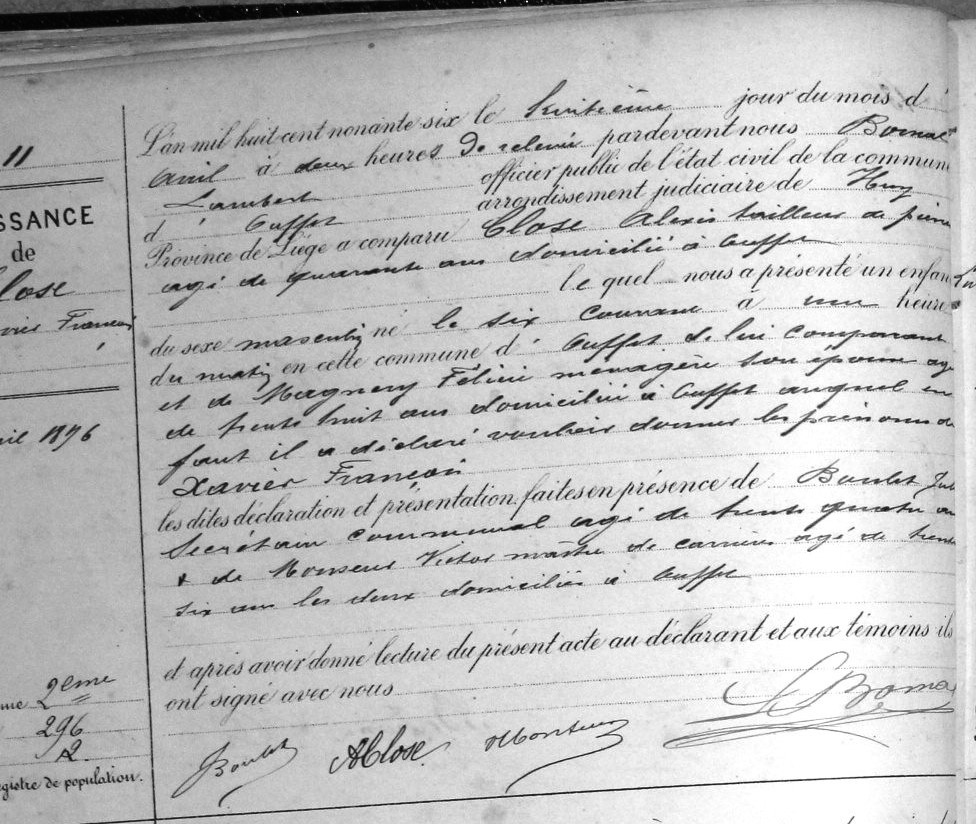 11
SSANCE
de
lose
vier François
ril 1896
me 2eme
296
2.
gistre de population.
L'an mil huit cent nonante six le huitième jour du mois d'
Avril à deux heures de relevée pardevant nous Bomal
Lambert officier public de l'état civil de la commun
d' Ouffet arrondissement judiciaire de Huy
Province de Liège a comparu Close Alexis tailleur de pierre
agé de quarante ans domicilié à Ouffet
le quel nous a présenté un enfan
du sexe masculin né le six courant à une heure
du matin en cette commune d' Ouffet de lui comparant
et de Magnery Félicie ménagère son épouse agé
de trente huit ans domiciliée à Ouffet auquel en
fant il a déclaré vouloir donner les prénoms de
Xavier François
les dites déclaration et présentation faites en présence de Boulet Jul
Secrétaire communal agé de trente quatre an
& de Victor maître de carrière agé de trente
six ans les deux domiciliés à Ouffet
et après avoir donné lecture du présent acte au déclarant et aux témoins ils
ont signé avec nous
Boulet AClose LBomal